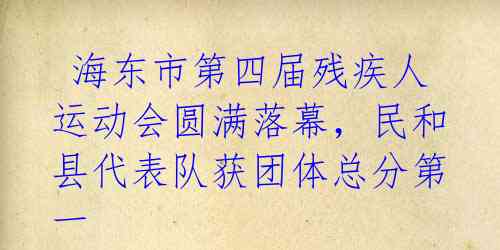 海东市第四届残疾人
运动会圆满落幕，民和
县代表队获团体总分第
一